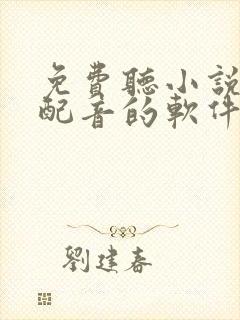 免費聽小說
配音的軟件
劉建春